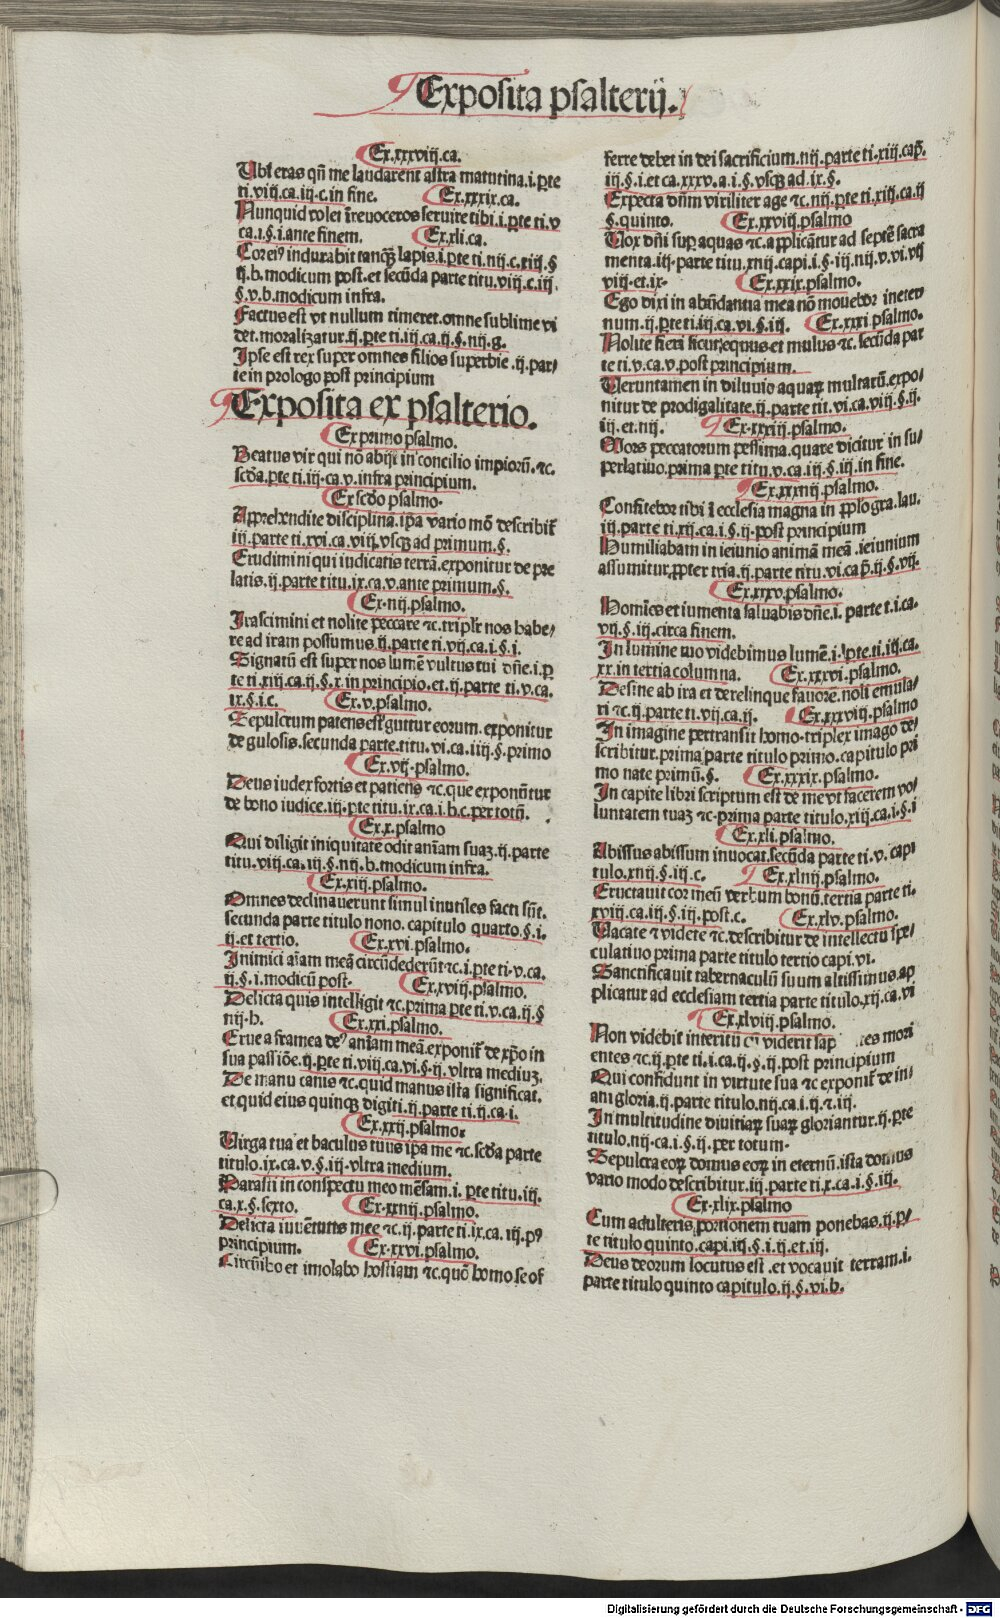 Exposita psalterij.
Ex.xxxviij.ca.
Ubi eras qñ me laudarent astra matutina.i.pte
ti.viij.ca.iij.c.in fine. Ex.xxxix.ca.
Nunquid volet īreuoceros seruire tibi.i.pte ti.v
ca.i.§.i.ante finem. Ex.xli.ca.
Cor eiꝰ indurabit tanqꝫ lapis.i.pte ti.iiij.c.xiij.§
ij.b.modicum post.et secūda parte titu.viij.c.iij.
§.v.b.modicum infra.
Factus est vt nullum timeret.omne sublime vi
det.moralizatur.ij.pte ti.iij.ca.ij.§.iiij.g.
Ipse est rex super omnes filios superbie.ij.par/
te in prologo post principium
Exposita ex psalterio.
Ex primo psalmo.
Beatus vir qui nō abijt in concilio impiorū.⁊c.
scđa.pte ti.iij.ca.v.infra principium.
Ex scđo psalmo.
Apprehendite disciplina.ipa vario mō describit̄
iij.parte ti.xvi.ca.viij.vsqꝫ ad primum.§.
Erudimini qui iudicatis terrā.exponitur de pre
latis.ij.parte titu.ix.ca.v.ante primum.§.
Ex.iiij.psalmo.
Irascimini et nolite peccare ⁊c.triplr̄ nos habe/
re ad iram possumus.ij.parte ti.vij.ca.i.§.i.
Signatū est super nos lumē vultus tui dñe.i.p
te ti.xiij.ca.ij.§.x.in principio.et.ij.parte ti.v.ca.
ix.§.i.c. Ex.v.psalmo.
Sepulcrum patens est guttur eorum.exponitur
de gulosis.secunda parte.titu.vi.ca.iiij.§.primo
Ex.vij.psalmo.
Deus iudex fortis et patiens ⁊c.que exponūtur
de bono iudice.iij.pte titu.ix.ca.i.b.c.per totū.
Ex.x.psalmo
Qui diligit iniquitatē odit aniam suaꝫ.ij.parte
titu.viij.ca.iij.§.iiij.b.modicum infra.
Ex.xiij.psalmo.
Omnes declinauerunt simul inutiles facti sūt.
secunda parte titulo nono.capitulo quarto.§.i.
ij.et tertio. Ex.xvi.psalmo.
Inimici aīam meā circūdederūt ⁊c.i.pte ti.v.ca.
ij.§.i.modicū post. Ex.xviij.psalmo.
Delicta quis intelligit ⁊c.prima pte ti.v.ca.ij.§
iiij.b. Ex.xxi.psalmo.
Erue a framea deꝰ aniam meā.exponit̄ de xpo in
sua passiōe.ij.pte ti.viij.ca.vi.§.ij.vltra mediuꝫ.
De manu canis ⁊c.quid manus ista significat.
et quid eius quinqꝫ digiti.ij.parte ti.ij.ca.i.
Ex.xxij.psalmo.
Virga tua et baculus tuus ipa me ⁊c.scđa parte
titulo.ix.ca.v.§.iij.vltra medium.
Parasti in conspectu meo mēsam.i.pte titu.iij.
ca.x.§.sexto. Ex.xxiiij.psalmo.
Delicta iuuētutis mee ⁊c.ij.parte ti.ix.ca.iij.pꝰ
principium. Ex.xxvi.psalmo.
Circūibo et imolabo hostiam ⁊c.quō homo.se of
ferre debet in dei sacrificium.iiij.parte ti.xiij.cap.
iij.§.i.et ca.xxxv.a.i.§.vsqꝫ ad.ix.§.
Expecta dñm viriliter age ⁊c.iiij.pte ti.xiij.ca.ij
§.quinto. Ex.xxviij.psalmo
Vox dñi sup aquas ⁊c.applicātur ad septē sacra
menta.iij.parte titu.xiiij.capi.i.§.iij.iiij.v.vi.vij
viij.et.ix. Ex.xxix.psalmo.
Ego dixi in abūdantia mea nō mouebor in eter
num.ij.pte ti.iij.ca.vi.§.iij. Ex.xxxi.psalmo.
Nolite fieri sicut equus et mulus ⁊c.secūda par
te ti.v.ca.v.post principium.
Veruntamen in diluuio aquaꝝ multarū.expo/
nitur de prodigalitate.ij.parte tit.vi.ca.viij.§.ij.
iij.et.iiij. Ex.xxxiij.psalmo.
Mors peccatorum pessima.quare dicitur in su/
perlatiuo.prima pte titu.v.ca.iij.§.iij.in fine.
Ex.xxxiiij.psalmo.
Confitebor tibi ī ecclesia magna in pplo gra.lau.
iij.parte ti.xij.ca.i.§.ij.post principium
Humiliabam in ieiunio animā meā.ieiunium
assumitur.ppter tria.ij.parte titu.vi.cap.ij.§.vij.
Ex.xxxv.psalmo.
Homīes et iumenta saluabis dñe.i.parte t.i.ca.
vij.§.iij.circa finem.
In lumine tuo videbimus lumē.i.pte.ti.iij.ca.
xx.in tertia columna. Ex.xxxvi.psalmo.
Desine ab ira et derelinque fauorē.noli emula/
ri ⁊c.ij.parte ti.vij.ca.ij. Ex.xxxviij.psalmo
In imagine pertransit homo.triplex imago de/
scribitur.prima parte titulo primo.capitulo pri
mo nate primū.§. Ex.xxxix.psalmo.
In capite libri scriptum est de me vt facerem vo/
luntatem tuaꝫ ⁊c.prima parte titulo.xiij.ca.i.§.i
Ex.xli.psalmo.
Abissus abissum inuocat.secūda parte ti.v.capi
tulo.xiiij.§.iij.c. Ex.xliiij.psalmo.
Eructauit cor meū verbum bonū.tertia parte ti.
xviij.ca.iij.§.iij.post.c. Ex.xlv.psalmo.
Vacate ⁊ videte ⁊c.describitur de intellectu spe/
culatiuo prima parte titulo tertio capi.vi.
Sanctificauit tabernaculū suum altissimus.ap
plicatur ad ecclesiam tertia parte titulo.xij.ca.vi
Ex.xlviij.psalmo.
Non videbit interitū cū viderit sap tes mori
entes ⁊c.ij.pte ti.i.ca.ij.§.ij.post principium
Qui confidunt in virtute sua ⁊c exponit̄ de in/
ani gloria.ij.parte titulo.iiij.ca.i.ij.⁊.iij.
In multitudine diuitiaꝝ suaꝝ gloriantur.ij.pte
titulo.iiij.ca.i.§.ij.per totum.
Sepulcra eoꝝ domus eoꝝ in eternū.ista domus
vario modo describitur.iij.parte ti.x.ca.i.§.iij.
Ex.xlix.psalmo
Cum adulteris.portionem tuam ponebas.ij.p/
te titulo quinto.capi.iij.§.i.ij.et.iij.
Deus deorum locutus est.et vocauit terram.i.
parte titulo quinto capitulo.ij.§.vi.b.
Digitalisierung gefördert durch die Deutsche Forschungsgemeinschaft - DFG